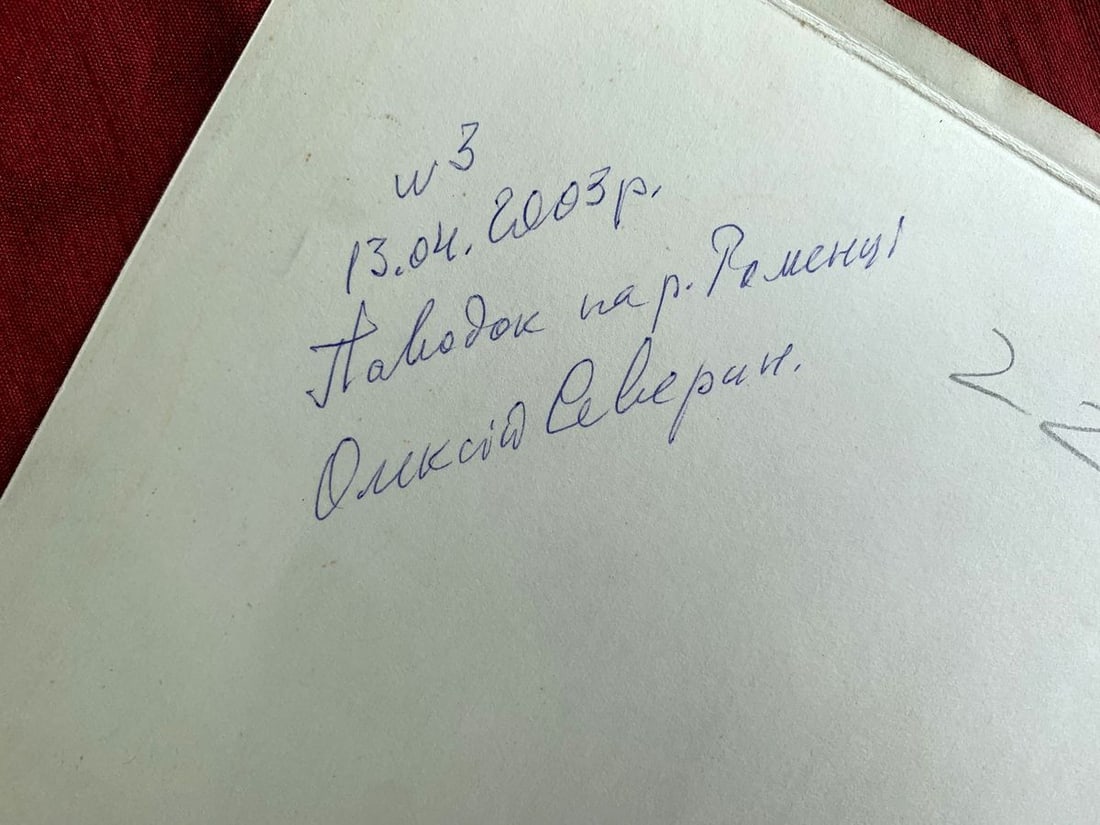 w 3
13.04.2003р.
Паводок на р. Роменці
Олексій Северин.